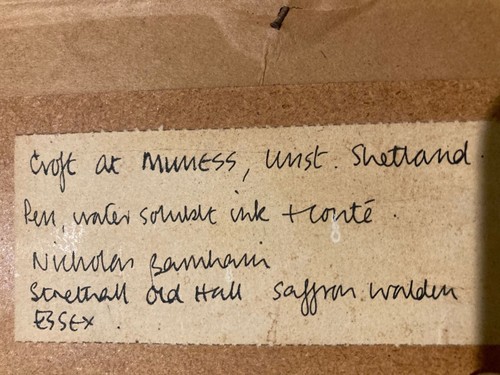 Croft at MUNESS, Unst. Shetland.
Pen, water soluble ink + conté.
Nicholas Barnham
Strethall Old Hall Saffron Walden
ESSEX.